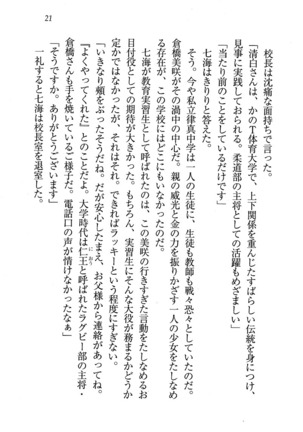 21
校長は沈痛な面持ちで言った。
「清白さんは、おかのＴ体育大学で、上下関係を重んじたすばらしい伝統を身につけ、
見事に実践しておられる。柔道部の主将としての活躍もめざましい」
「当たり前のことをしているだけです」
七海はきりりと答えた。
そう。今や私立律真中学は一人の生徒に、生徒も教師も戦々恐々としていた。
倉橋美咲がその渦中の中心だ。親の威光と金の力を振りかざす一人の少女をたしなめ
る存在が、この学校にはどこにもいなかったのだ。
七海が教育実習生として呼ばれたのは、この美咲の行きすぎた言動をたしなめるお
目付役としての期待が大きかった。もちろん、実習生にそんな大役が務まるかどうか
定かではなかったが、それはそれ。できればラッキーという程度にすぎない。
「いきなり頬をぶったそうだね。だが安心したまえ、お父様から連絡があってね。
『よくやってくれた』とのことだよ。大学時代は仁王と呼ばれたラグビー部の主将・
倉橋さんも手を焼いているご様子だ。電話口の声が情けなかったなぁ」
「そうですか。ありがとうございます」
一礼すると七海は校長室を退室した。